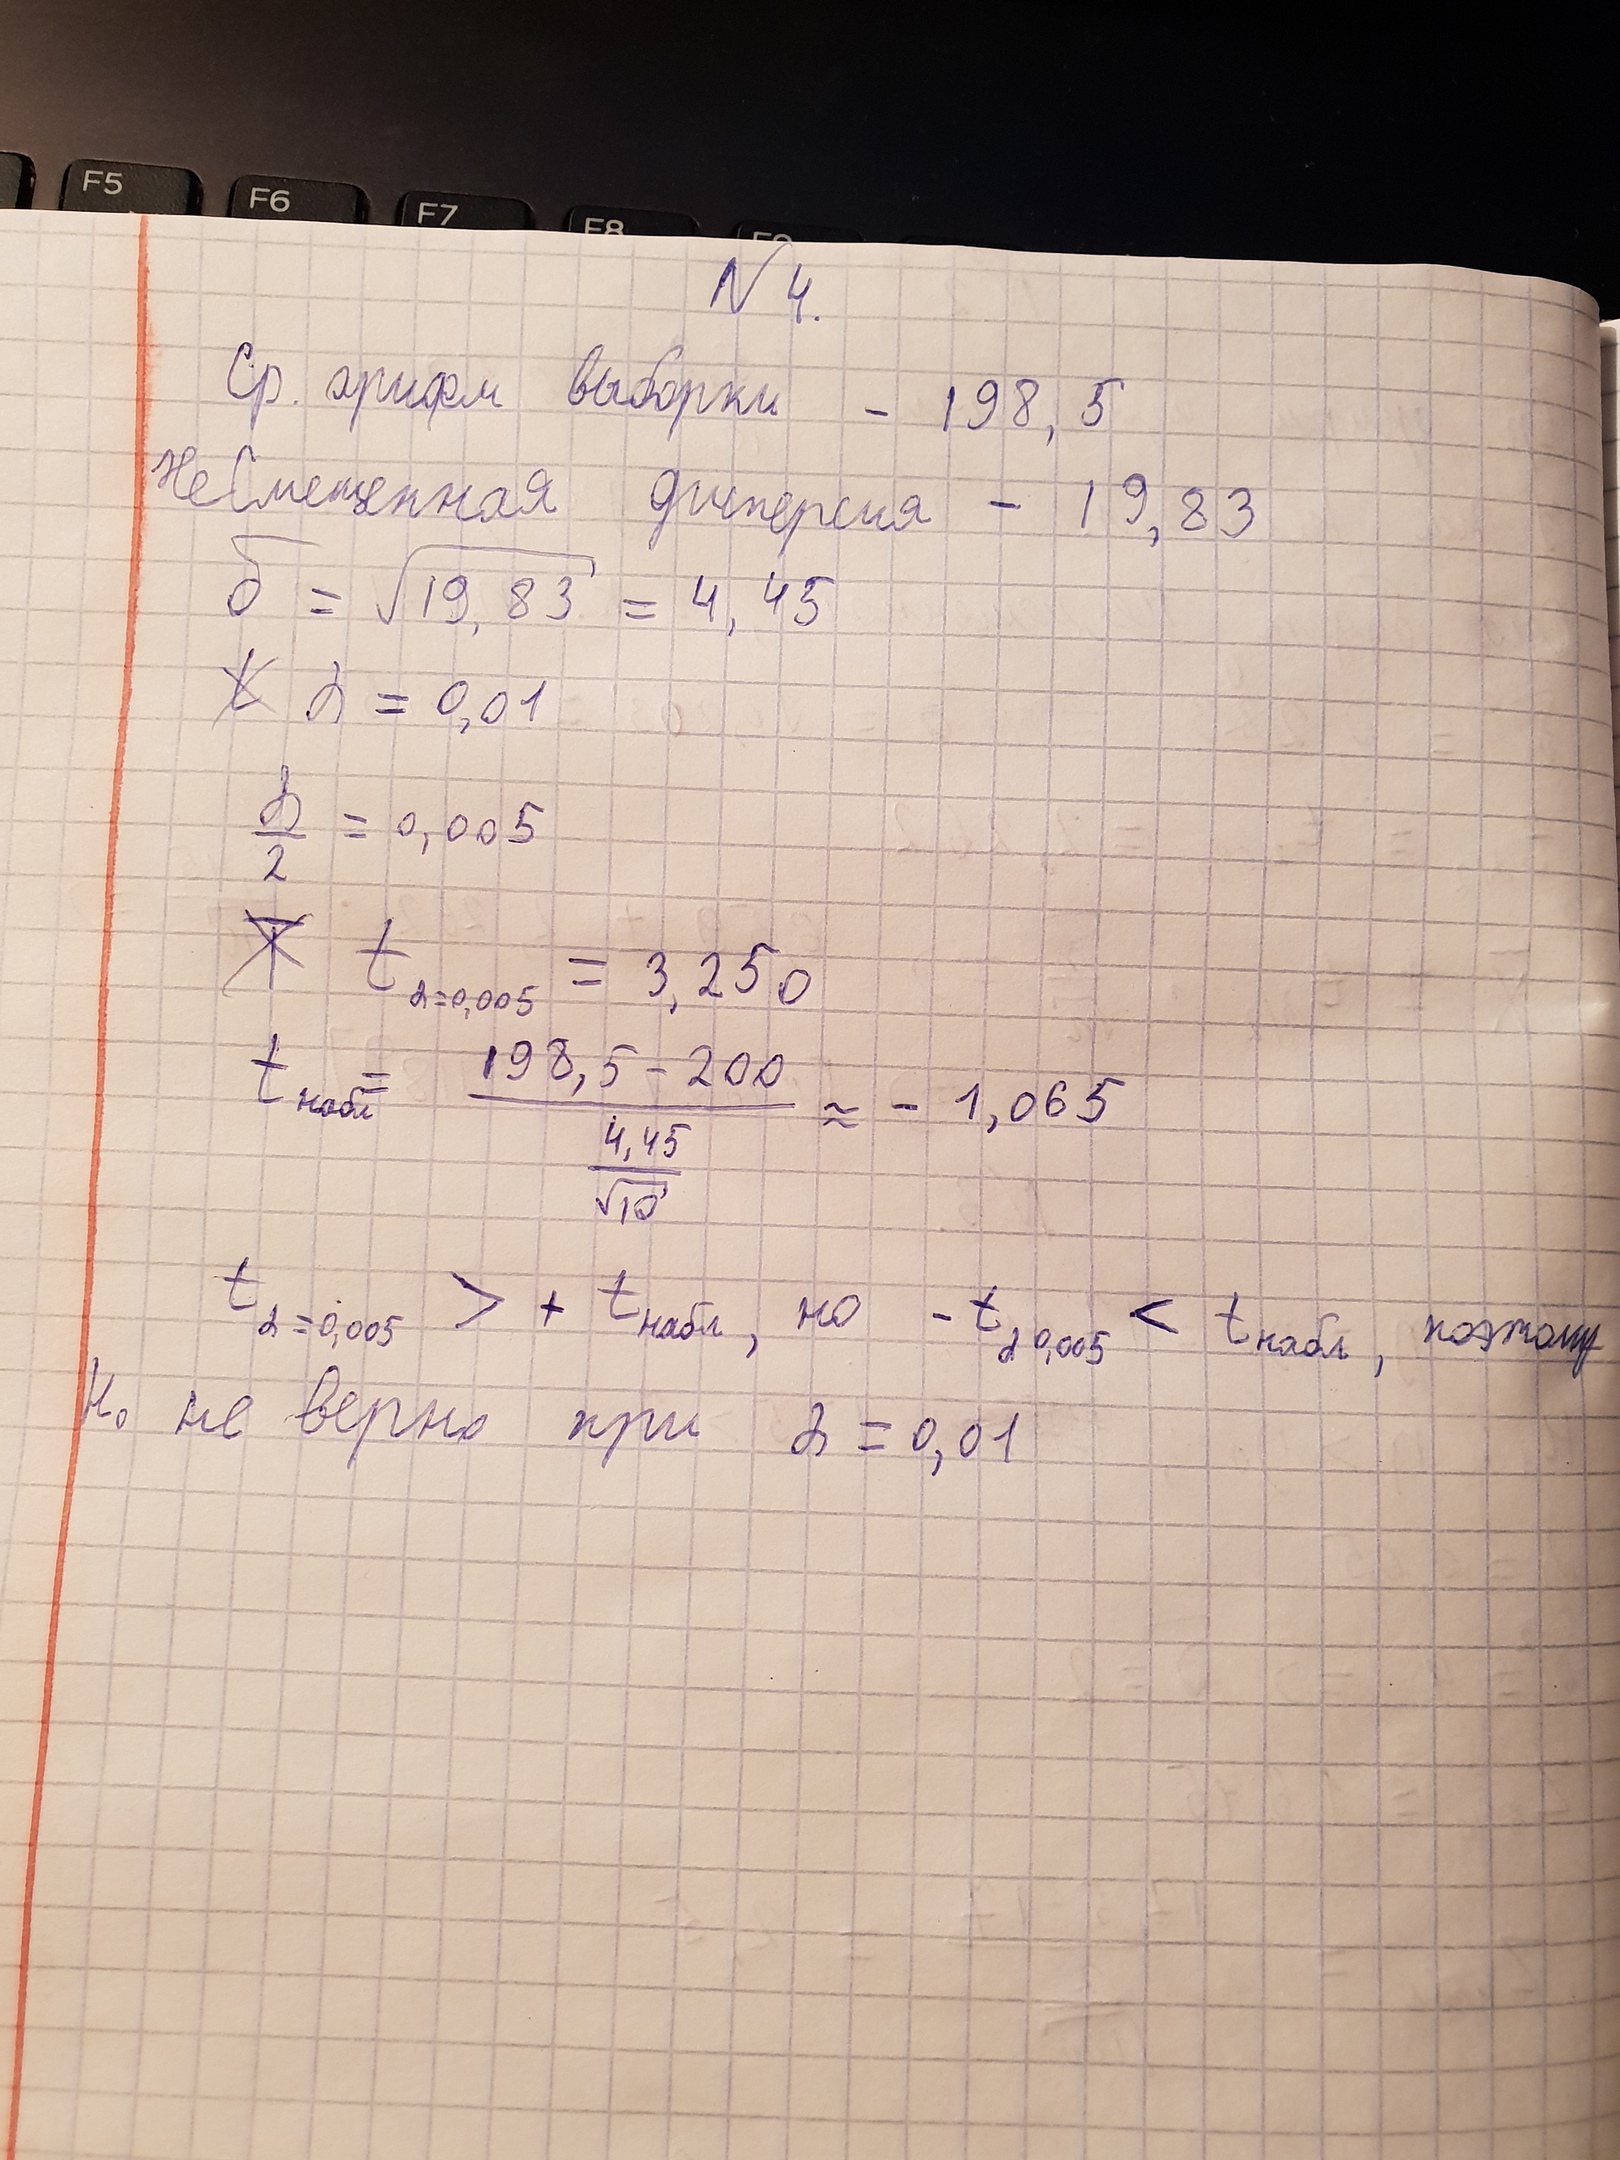 F5
F6
F7
F8
F9
N 4.
Ср. арифм выборки - 198,5
Несмещенная дисперсия - 19,83
σ = √19,83 = 4,45
α = 0,01
α/2 = 0,005
t α=0,005 = 3,250
t набл = (198,5 - 200) / (4,45/√10) ≈ - 1,065
t α=0,005 > + t набл, но - t α 0,005 < t набл, поэтому
H₀ не верно при α = 0,01